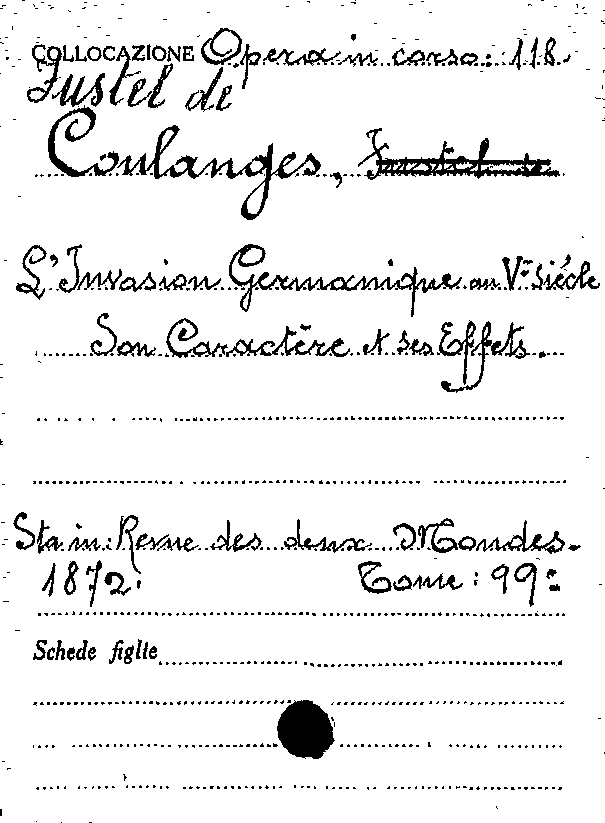 COLLOCAZIONE Opera in corso: 118.
Fustel de
Coulanges, Fustel de
L'Invasion Germanique au Vme Siécle
Son Caractère et ses Effets.
Sta in: Revue des deux Mondes.
1872: Tome: 99:
Schede figlie